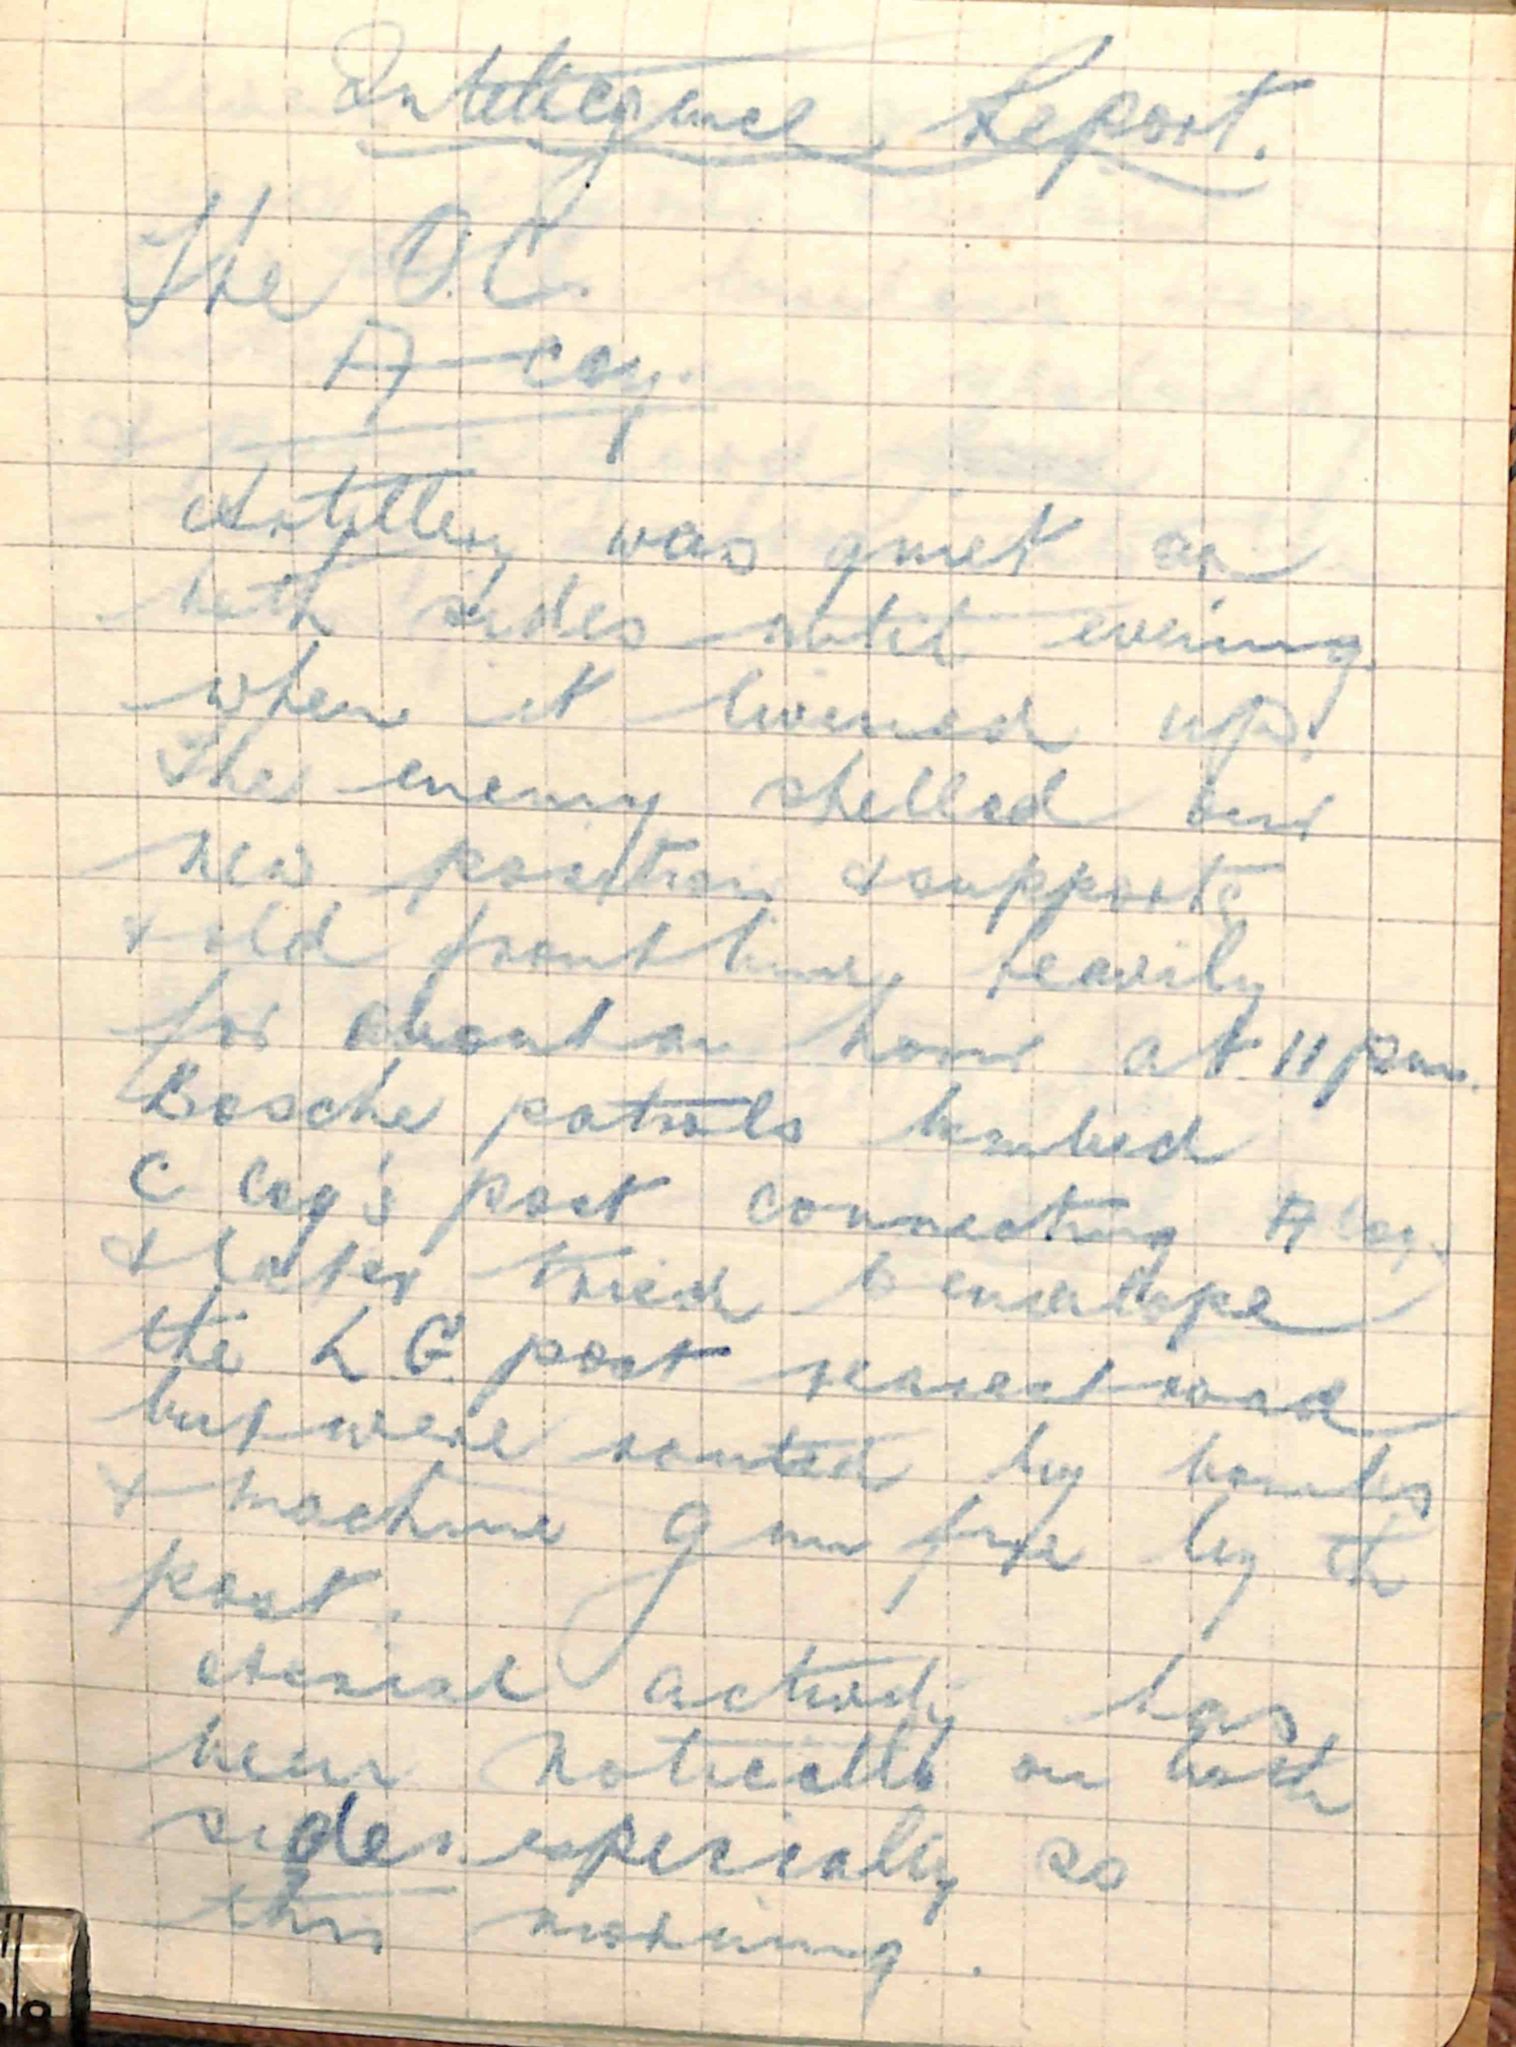 Intelligence Report.
The O.C.
A Coy.
Artillery was quiet on
both sides until evening
when it livened up.
The enemy shelled our
new position & supports
& old front line heavily
for about an hour at 11 pm.
Bosche patrols bombed
C Coy's post connecting A Coy.
& later tried to envelope
the L.G. post nearest road
but were routed by bombs
& machine gun fire by the
post.
Aerial activity has
been noticeable on both
sides especially so
this morning.